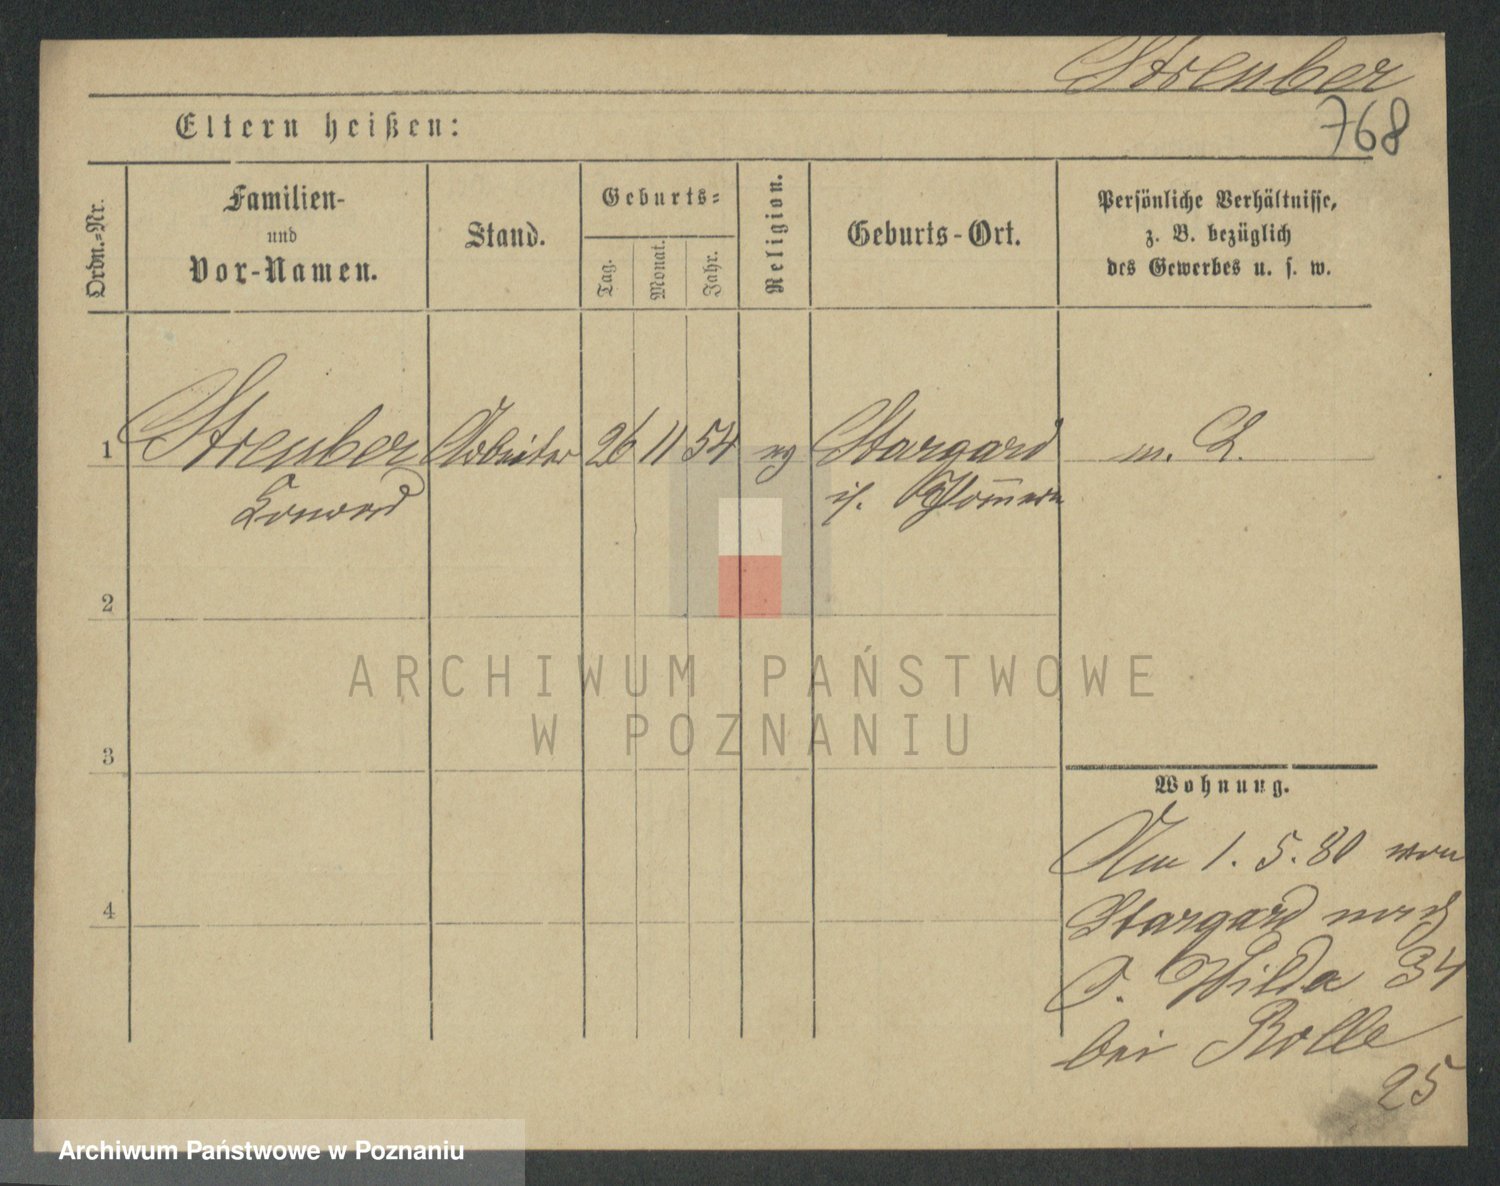 Streuber
768
Eltern heißen:
Ordn.=Nr.
Familien-
und
Vor-Namen.
Stand.
Geburts=
Tag.
Monat.
Jahr.
Religion.
Geburts-Ort.
Persönliche Verhältnisse,
z. B. bezüglich
des Gewerbes u. s. w.
1 Streuber Arbeiter 26 11 54 eg Stargard m. L.
Conrad i/. Pommern
2
3
4
ARCHIWUM PAŃSTWOWE
W POZNANIU
Wohnung.
Am 1. 5. 80 von
Stargard nach
O. Wilda 34
bei Rolle
25
Archiwum Państwowe w Poznaniu